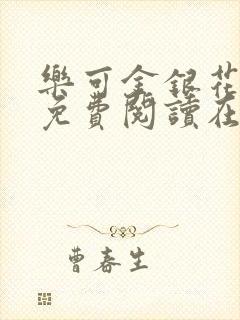 樂可金銀花
免費閱讀在
曹春生